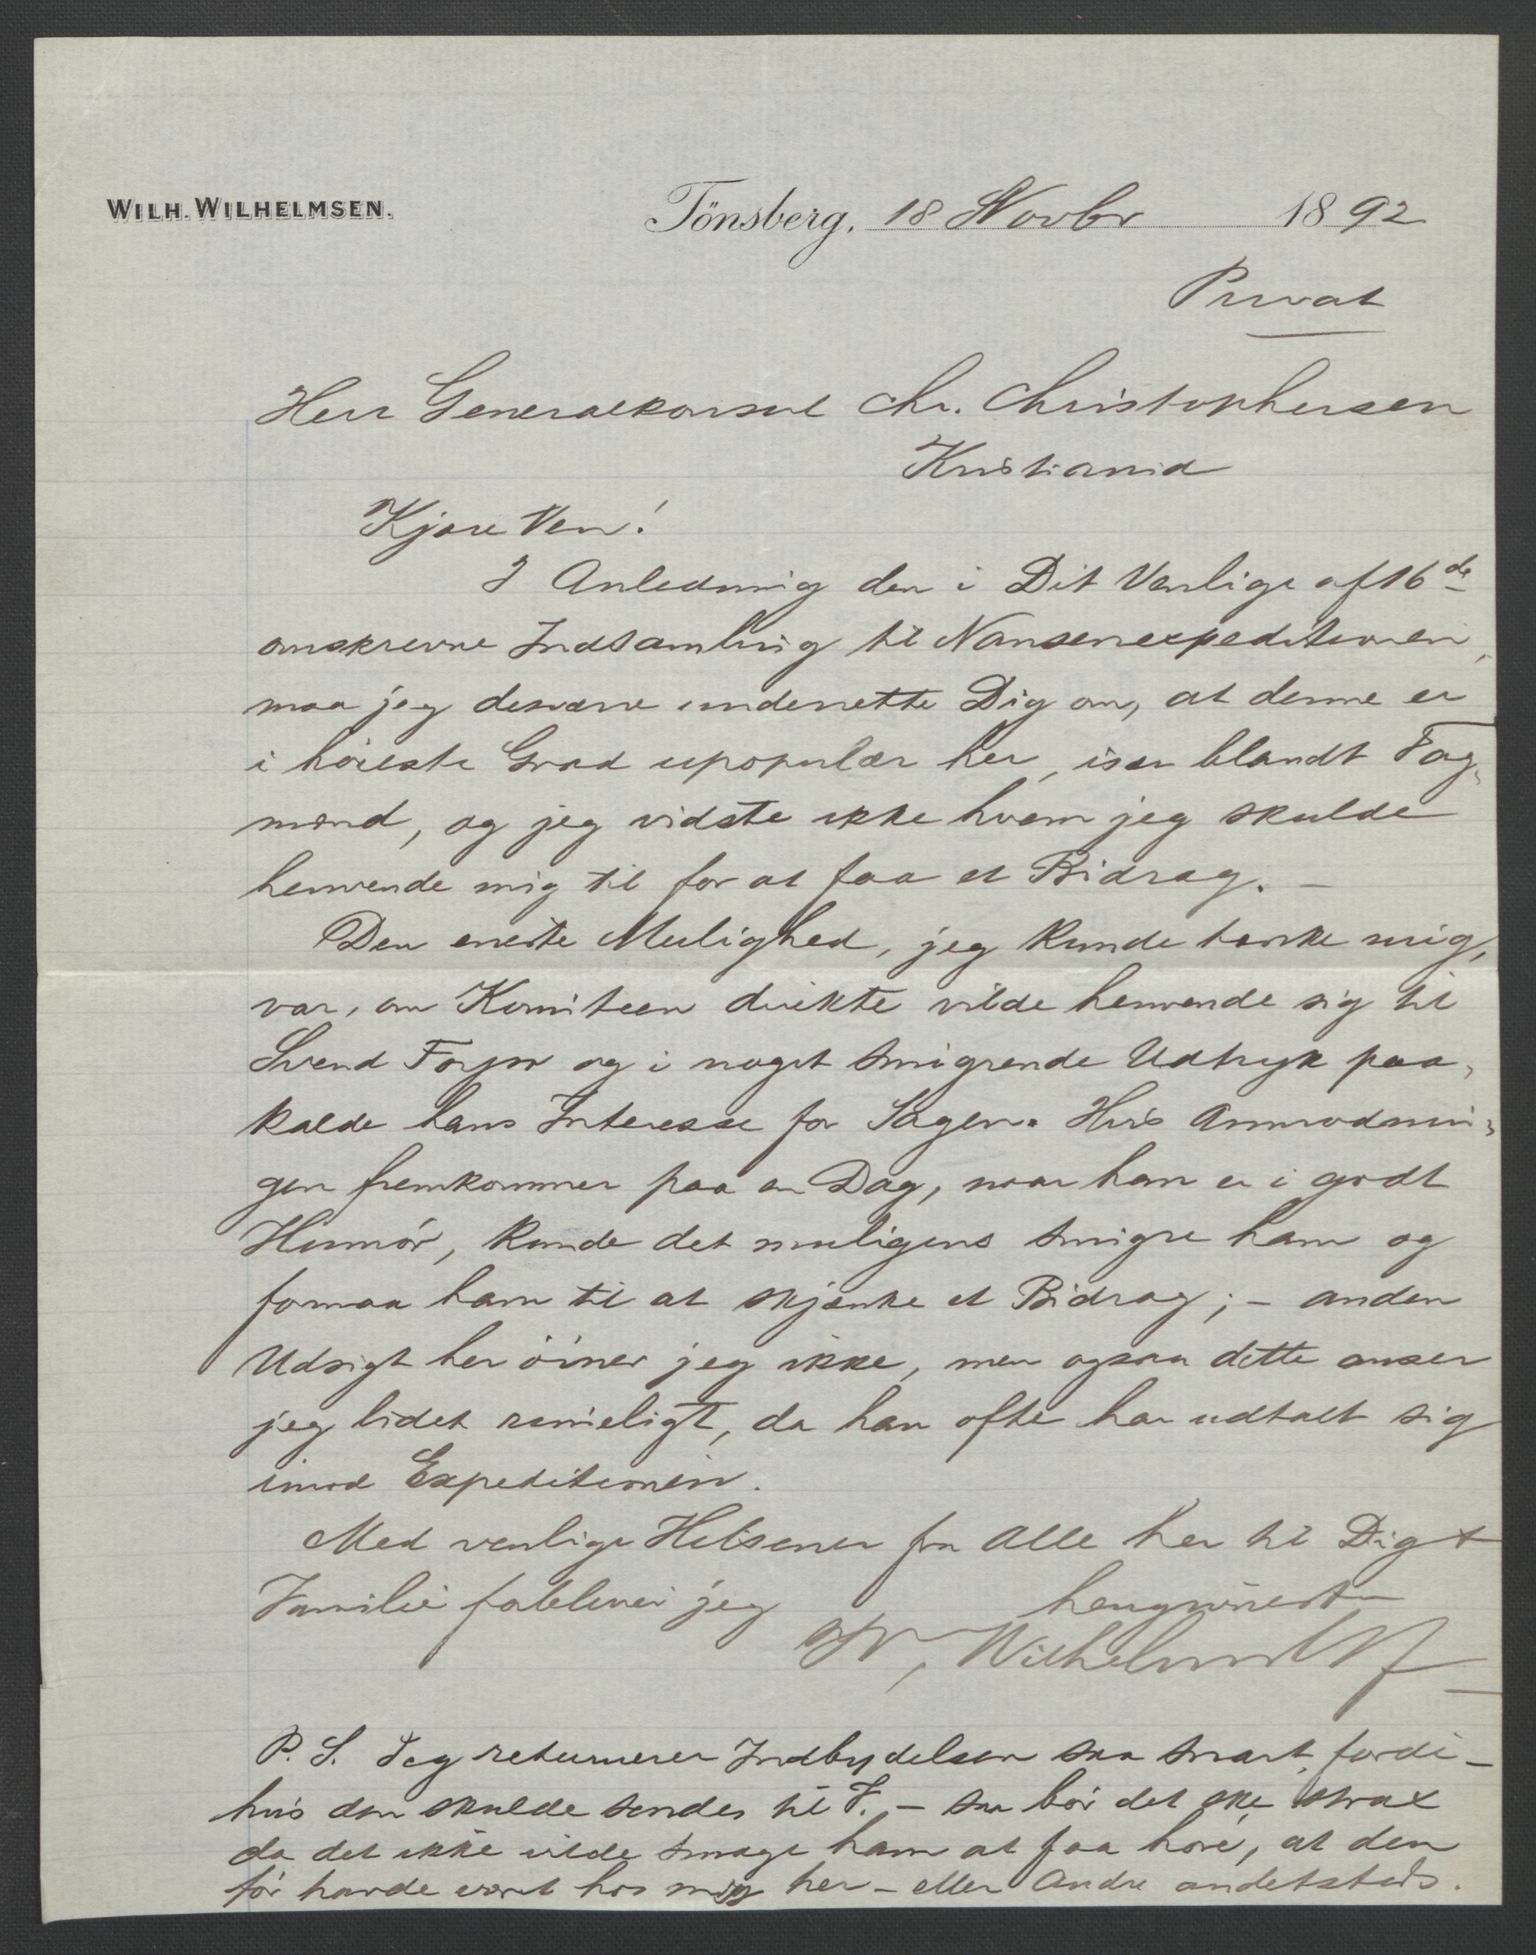 WILH. WILHELMSEN.
Tönsberg, 18 Novbr 1892
Privat
Herr Generalkonsul Chr. Christophersen
Kristiania
Kjære Ven!
I Anledning den i Dit Venlige af 16de
omskrevne Indsamling til Nansenexpeditionen,
maa jeg desværre underrette Dig om, at denne er
i høieste Grad upopulær her, især blandt Fag-
mænd, og jeg vidste ikke hvem jeg skulde
henvende mig til for at faa et Bidrag. –
Den eneste Mulighed, jeg kunde tænke mig,
var, om Komiteen direkte vilde henvende sig til
Svend Foyn og i noget smigrende Udtryk paa-
kalde hans Interesse for Sagen. Hvis Anmodnin-
gen fremkommer paa en Dag, naar han er i godt
Humör, kunde det muligens smigre ham og
formaa ham til at skjænke et Bidrag; – anden
Udsigt her öiner jeg ikke, men ogsaa dette anser
jeg lidet rimeligt, da han ofte har udtalt sig
imod Expeditionen.
Med venlige Hilsener fra Alle her til Dig &
Familie forbliver jeg hengivenst
W, Wilhelmsen
P. S. Jeg returnerer Indbydelsen saa snart, fordi –
hvis den skulde sendes til F. – saa bör det ske strax
da det ikke vilde smage ham at faa höre, at den
för havde været hos mig her – eller Andre andetsteds.